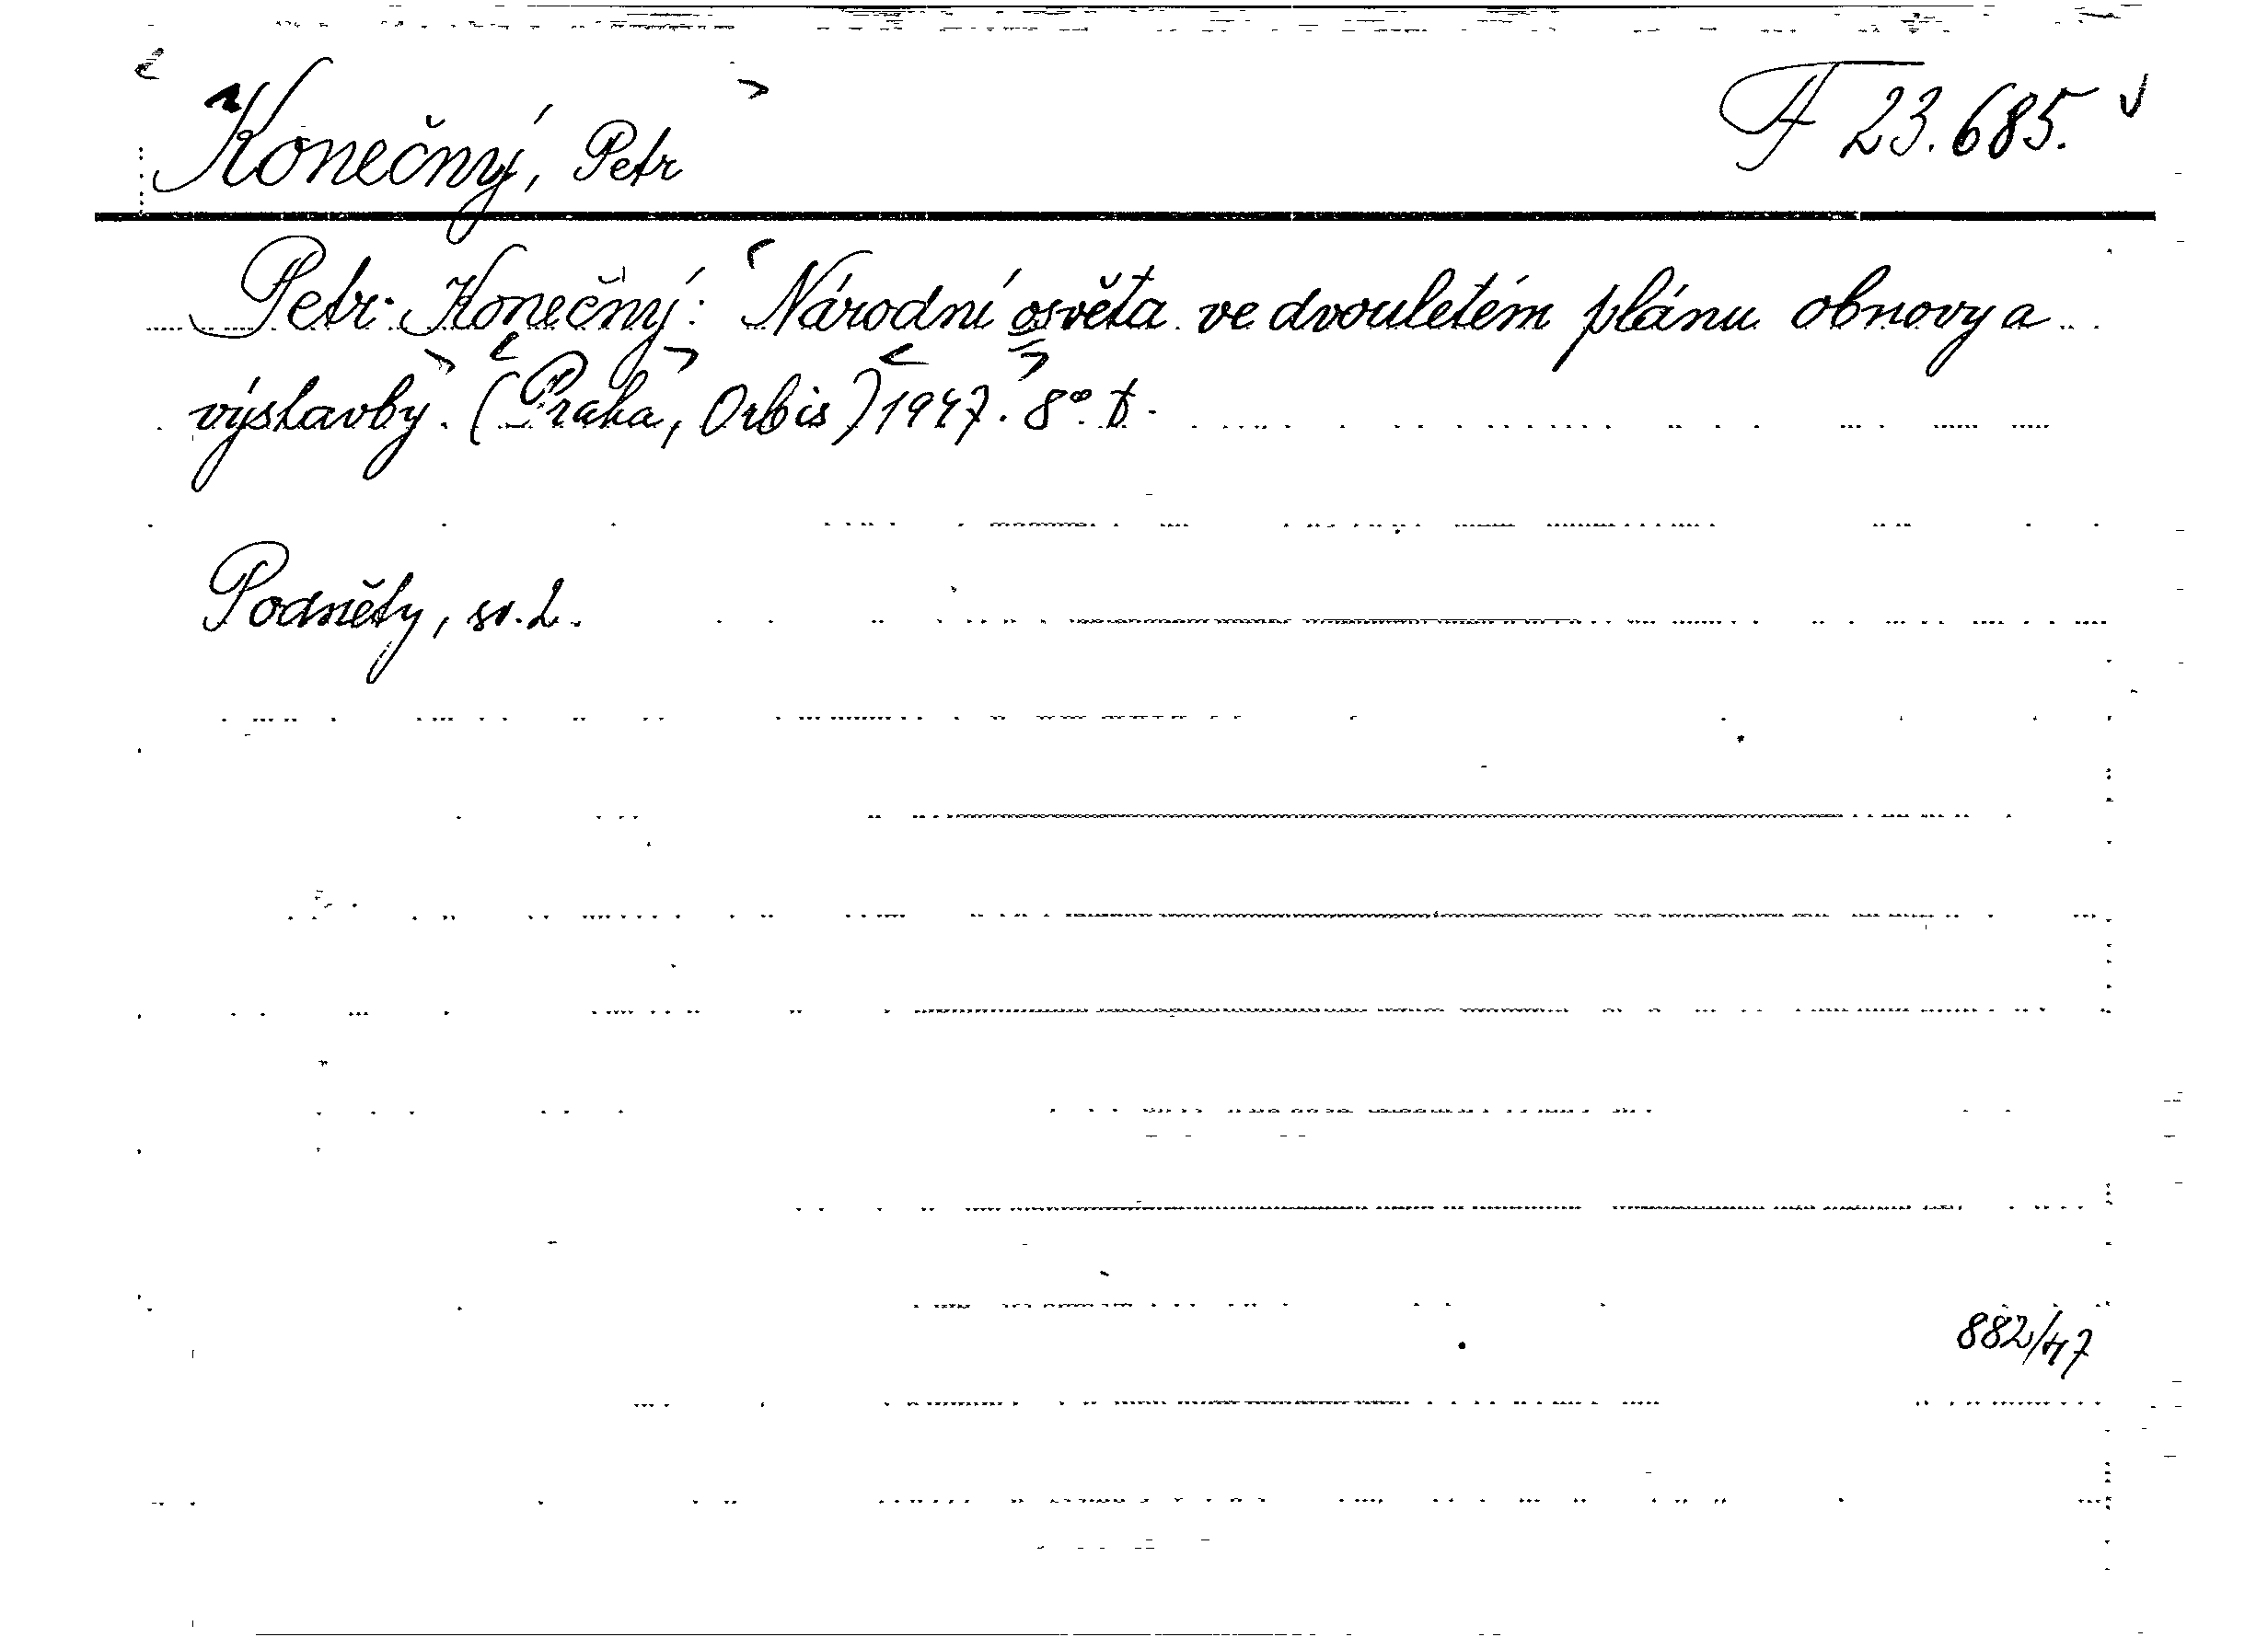 Konečný, Petr
F 23.685.
Petr Konečný: Národní osvěta ve dvouletém plánu obnovy a
výstavby. (Praha, Orbis) 1947. 8°
Podněty, sv. 2.
882/47